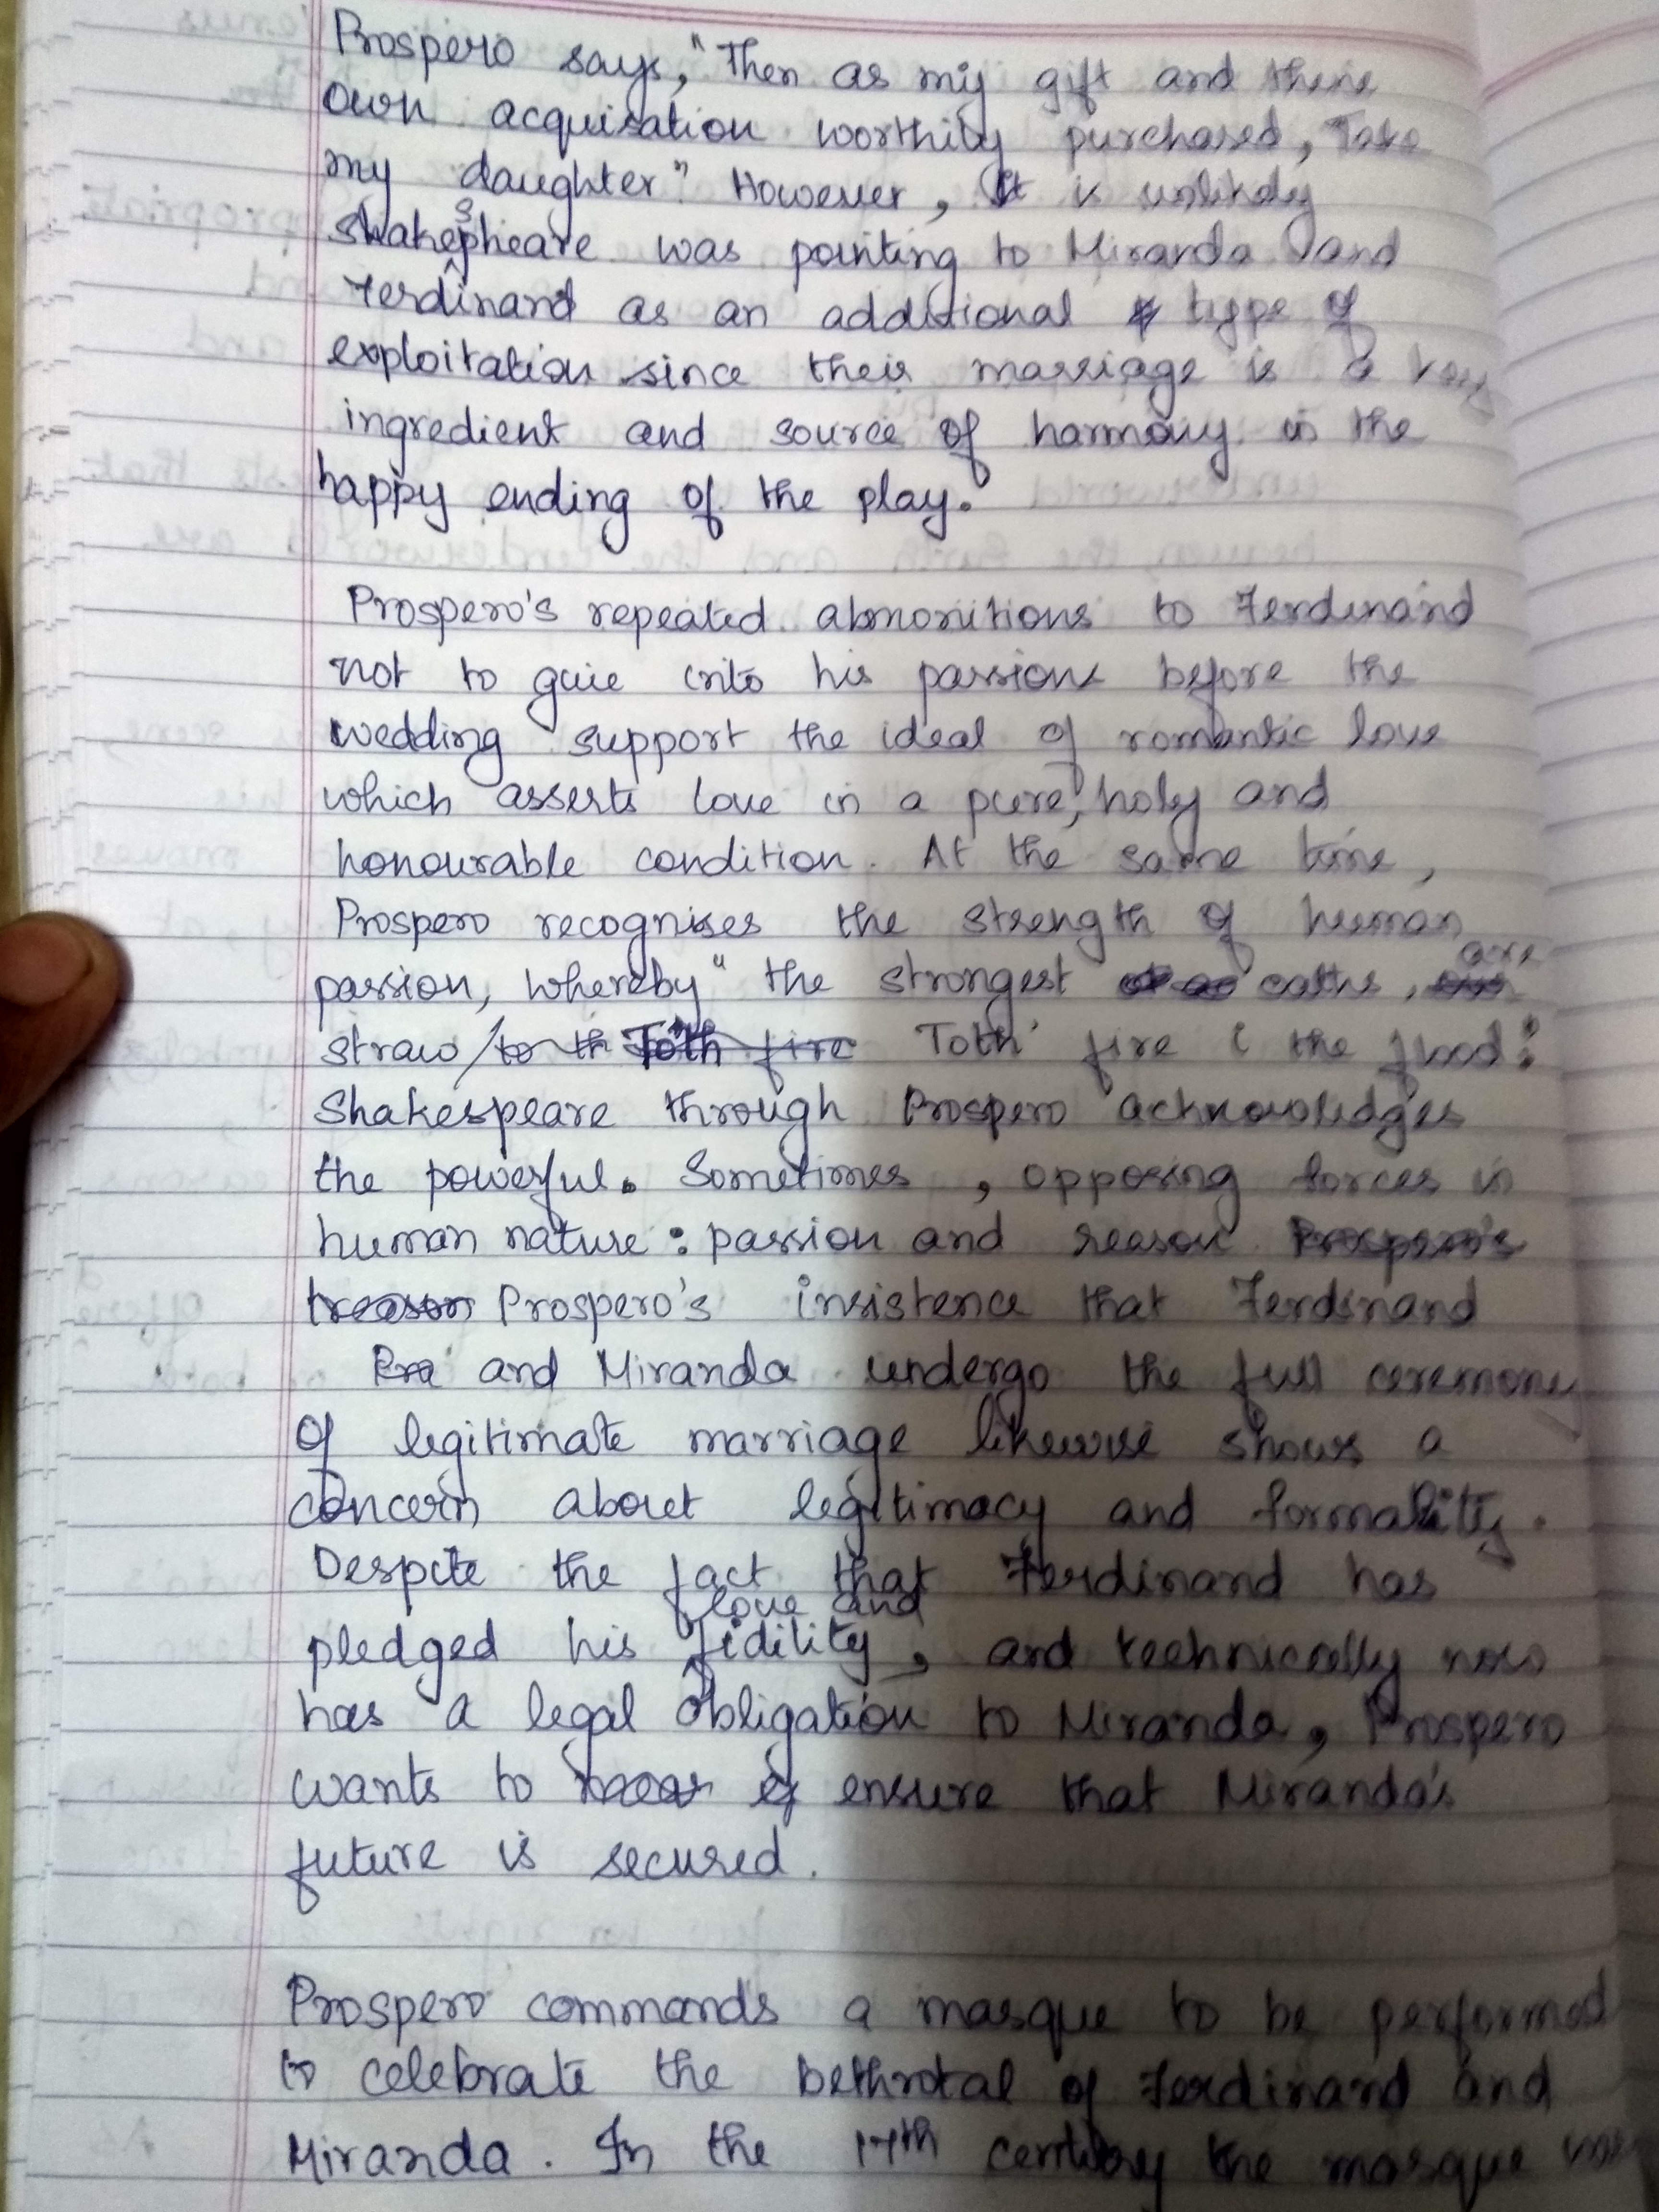 Prospero says, "Then as my gift and thine
own acquisation worthily purchased, Take
my daughter" However, It is unlikely
Shakespheare was pointing to Miranda and
Ferdinand as an additional type of
exploitation since their marriage is a key
ingredient and source of harmony in the
happy ending of the play.
Prospero's repeated abmonitions to Ferdinand
not to give into his passions before the
wedding support the ideal of romantic love
which asserts love in a pure, holy and
honourable condition. At the same time,
Prospero recognises the strength of human
passion, whereby "the strongest oaths, are
straw Toth' fire i the flood:
Shakespeare through Prospero acknowledges
the powerful. Sometimes, opposing forces in
human nature: passion and reason
Prospero's insistence that Ferdinand
and Miranda undergo the full ceremony
of legitimate marriage likewise shows a
concern about legitimacy and formality.
Despite the fact that Ferdinand has
pledged his love and fidility, and technically now
has a legal obligation to Miranda, Prospero
wants to ensure that Miranda's
future is secured.
Prospero commands a masque to be performed
to celebrate the bethrotal of Ferdinand and
Miranda. In the 17th century the masque was